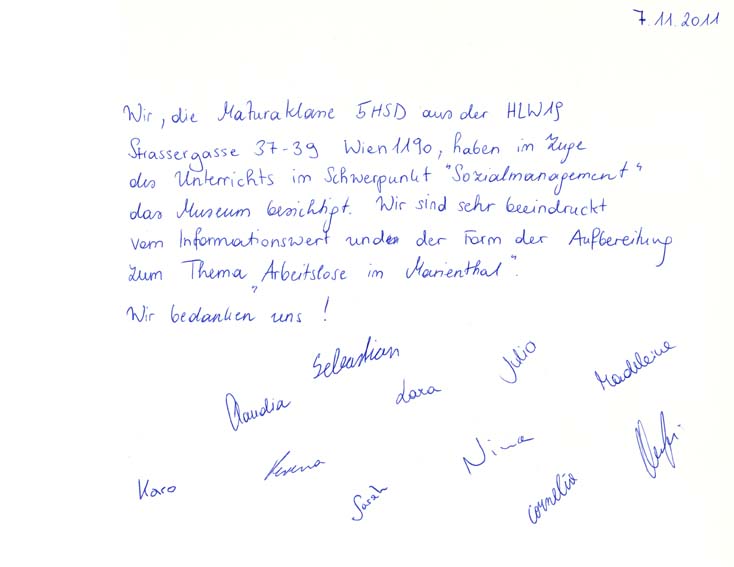 7.11.2011
Wir, die Maturaklasse 5HSD aus der HLW19
Strassergasse 37-39 Wien 1190, haben im Zuge
des Unterrichts im Schwerpunkt "Sozialmanagement"
das Museum besichtigt. Wir sind sehr beeindruckt
vom Informationswert und der Form der Aufbereitung
zum Thema „Arbeitslose im Marienthal".
Wir bedanken uns!
Sebastian
Julia
Madeleine
Claudia
Lara
Verena
Nina
Karo
Sarah
Cornelia